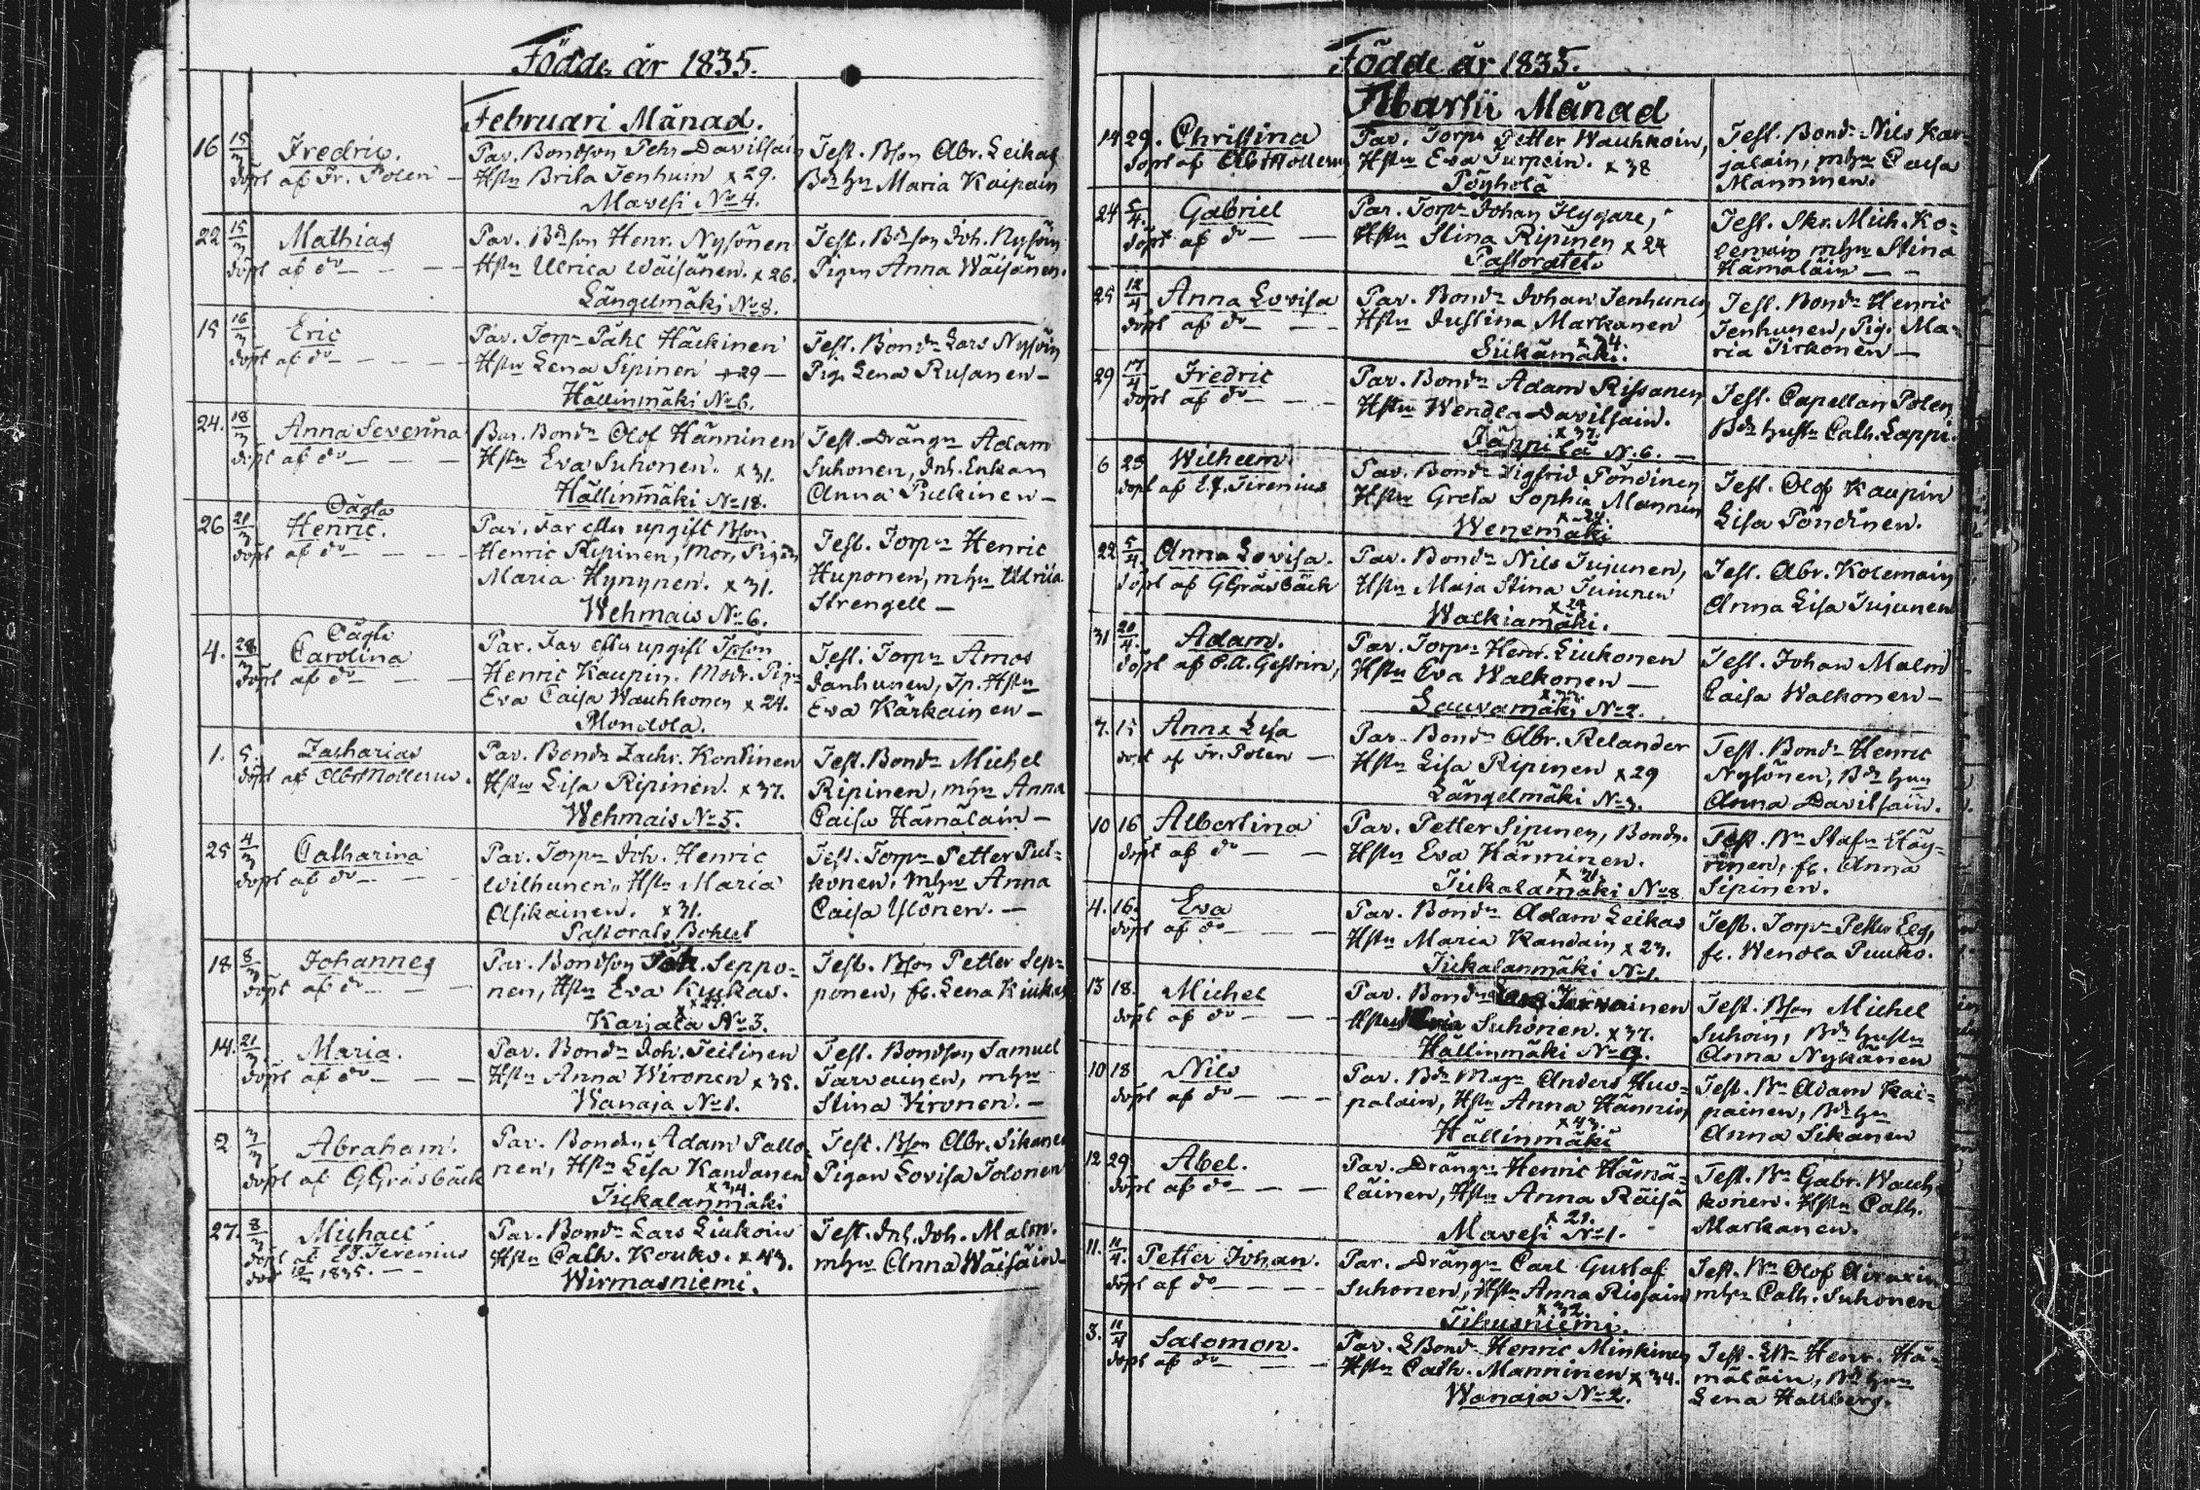 Födde år 1835.
Februari Månad.
16 15/3 Fredric.
döpt af Fr. Polén
Par. Bondson Pehr Davilsain
Hstn Brita Jenhuin x 29.
Mavesi No 4.
Test. Bson Abr. Leikas
Bdehn Maria Kaipain
22 15/3 Mathias
döpt af do
Par. Bdson Henr. Nysönen
Hstn Ulrica Wäisänen. x 26.
Längelmäki No 8.
Test. Bdson Joh. Nysöin
Pigan Anna Wäisänen.
15 16/3 Eric
döpt af do
Par. Torpn Påhl Häkinen
Hstn Lena Sipinen x 29
Hällinmäki No 6.
Test. Bondn Lars Nysöin
Pig. Lena Rusanen
24. 18/3 Anna Severina
döpt af do
Par. Bondn Olof Hänninen
Hstn Eva Suhonen. x 31.
Hällinmäki No 18.
Test. Drängn Adam
Suhonen, Inh. Enkan
Anna Pulkinen
Oägta
26 21/3 Henric.
döpt af do
Par. Far efter upgift Bson
Henric Ripinen, Mor, Pigan
Maria Hynynen. x 31.
Wehmais No 6.
Test. Torpn Henric
Huponen, mhu Ulrica
Strengell
Oägta
4. 28/3 Carolina
döpt af do
Par. Far efter upgift Tpson
Henric Kaupin. Modr. Pign
Eva Caisa Wauhkonen x 24.
Mondola.
Test. Torpn Amos
Janhunen, Tp. Hstn
Eva Kärkainen
1. 5. Zacharias
döpt af Abr. Mollerus.
Par. Bondn Zachr. Kontinen
Hstn Lisa Ripinen. x 37.
Wehmais No 5.
Test. Bondn Michel
Ripinen, mhn Anna
Caisa Hämäläin
25 4/3 Catharina
döpt af do
Par. Torpn Joh. Henric
Wilhunen, Hstn Maria
Asikainen. x 31.
Pastorats Bohlet
Test. Torpn Petter Pul-
konen, mhn Anna
Caisa Ylönen.
18 8/3 Johannes
döpt af do
Par. Bondson Joh. Seppo-
nen, Hstn Eva Kiukas.
Karjala No 3.
Test. Bson Petter Sep-
ponen, fl. Lena Kiukas
14. 21/3 Maria.
döpt af do
Par. Bondn Joh. Teitinen
Hstn Anna Wironen x 35.
Wanaja No 1.
Test. Bondson Samuel
Tarvainen, mhn
Stina Vironen.
2 3/3 Abraham.
döpt af G Gråsbäck
Par. Bonden Adam Pallo-
nen, Hstn Lisa Kandanen
x 34
Tiukalanmäki
Test. Bson Abr. Sikanen
Pigan Lovisa Tolonen
27. 8/3 Michael
döpt af E J. Perenius
1835.
Par. Bondn Lars Liukoin
Hstn Cath. Kouko. x 43.
Wirmasniemi.
Test. Inh. Joh. Malm.
mhn Anna Wäisäin
Födde år 1835.
Martii Månad
14 29. Christina
döpt af Abr Mollerus
Par. Torpn Petter Wauhkoin,
Hstn Eva Turpein. x 38
Pöyhölä
Test. Bondn Nils Kar-
jalain, mhn Caisa
Manninen.
24 5/4. Gabriel
döpt af do
Par. Torpn Johan Flygare,
Hstn Stina Ripinen x 24
Pastoratet.
Test. Skr. Mich. Ko-
lemain mhn Stina
Hämäläin
25 12/4 Anna Lovisa
döpt af do
Par. Bondn Johan Jenhunen,
Hstn Justina Markanen
x 34.
Siikamäki.
Test. Bondn Henric
Jenhunen, Pig. Ma-
ria Tirkonen
29 17/4 Fredric
döpt af do
Par. Bondn Adam Rissanen
Hstn Wendla Davilsain.
x 37.
No 6.
Test. Capellan Polen
Bdn hustn Cath. Lappi.
6 23 Wilhelm.
döpt af E. J. Perenius
Par. Bondn Sigfrid Pöndinen
Hstn Greta Sophia Mannin
Wenemäki
Test. Olof Kaupin
Lisa Pöndinen.
22 5/4. Anna Lovisa.
döpt af G Gråsbäck
Par. Bondn Nils Jujunen,
Hstn Maja Stina
x 24
Walkiamäki.
Test. Abr. Kolemain
Anna Lisa Jujunen
31 20/4. Adam.
döpt af P. A. Gestrin,
Par. Torpn Henr. Liukonen
Hstn Eva Walkonen
Lauvamäki No 2.
Test. Johan Malm
Caisa Walkonen
7. 15 Anna Lisa
döpt af Fr. Polen
Par. Bondn Abr. Relander
Hstn Lisa Ripinen x 29
Längelmäki No 3.
Test. Bondn Henric
Nysönen, Bdn hun
Anna Davilsain.
10 16 Albertina
döpt af do
Par. Petter Sipinen, Bondn.
Hstn Eva Hänninen.
Tiukalamäki No 8
Test. Bn Stafn Häy-
rinen, fl. Anna
Sipinen.
4. 16. Eva
döpt af do
Par. Bondn Adam Leikas
Hstn Maria Kandain x 23.
Tiukalanmäki No 1.
Test. Torpn Petter Eeg,
fl. Wendla Puuko.
13 18. Michel
döpt af do
Par. Bondn
Suhonen. x 37.
Hällinmäki No 9.
Test. Bson Michel
Suhoin, Bdn hustn
Anna Nykänen
10 18 Nils
döpt af do
Par. Bdn Magn Anders Huo-
palain, Hstn Anna Hännin
x 43.
Hällinmäki
Test. Bn Adam Kai-
painen, Bdn hn
Anna Sikanen
12 29. Abel.
döpt af do
Par. Drängn Henric Hämä-
läinen, Hstn Anna Räisä
x 21.
Mavesi No 1.
Test. Bn Gabr. Wauh-
konen. Hstn Cath.
Markanen.
11. 11/4. Petter Johan.
döpt af do
Par. Drängn Carl Gustaf
Suhonen, Hstn Anna Rissain
x 32.
Tihusniemi.
Test. Bn Olof Airaxin
mhn Cath. Suhonen
3. 11/4 Salomon.
döpt af do
Par. LBondn Henric Minkinen
Hstn Cath. Manninen x 34.
Wanaja No 2.
Test. LBn Henr. Hä-
mäläin, Bdn hun
Lena Hallberg.